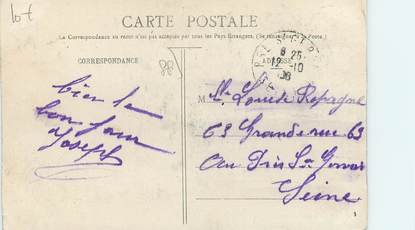 lot
CARTE POSTALE
La Correspondance au recto n'est pas acceptée par tous les Pays Étrangers. (Se renseigner à la Poste.)
CORRESPONDANCE
ADRESSE
8 25
12-10
08
bien le
bon jour
Joseph
M
Lle Louise Repagne
63 Grande rue 63
au Près St Gervais
Seine